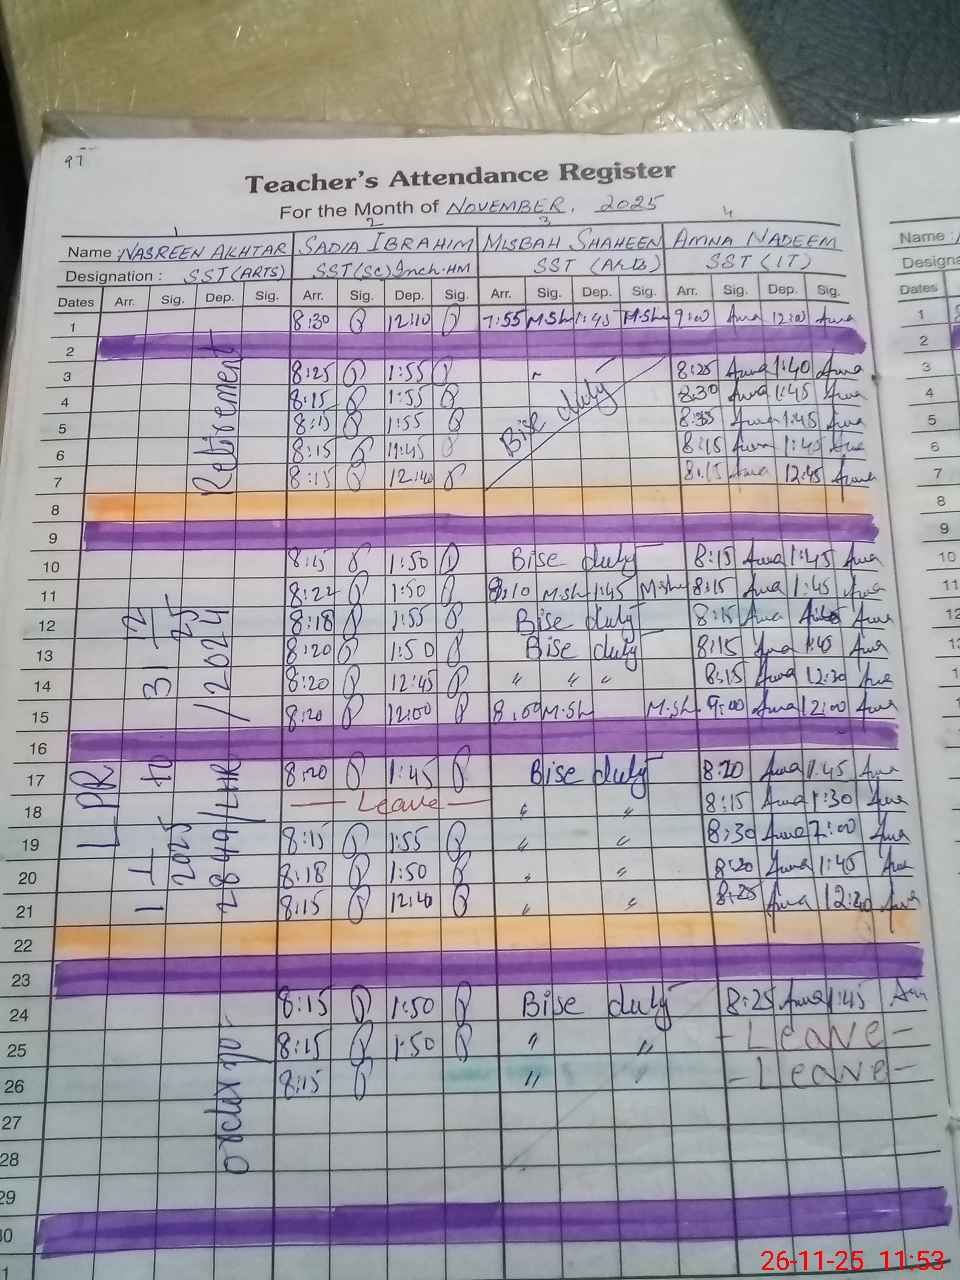 97
Teacher's Attendance Register
For the Month of NOVEMBER. 2025
1 2 3 4
Name: NASREEN AKHTAR SADIA IBRAHIM MISBAH SHAHEEN AMNA NADEEM Name:
Designation: SST(ARTS) SST(SC)Inch.HM SST (ARTS) SST (IT) Designa
Dates Arr. Sig. Dep. Sig. Arr. Sig. Dep. Sig. Arr. Sig. Dep. Sig. Arr. Sig. Dep. Sig. Dates
1 8:30 12:10 7:55 M.Sh 1:45 M.Sh 9:00 Ama 12:00 Ama 1
2 2
3 8:25 1:55 8:25 Ama 1:40 Ama 3
4 8:15 1:55 8:30 Ama 1:45 Ama 4
5 8:15 1:55 8:35 Ama 1:45 Ama 5
6 8:15 8:15 Ama 1:45 Ama 6
7 8:15 12:40 8:15 Ama 12:45 Ama 7
Bise duty
Retirement
8 8
9 9
10 8:15 1:50 Bise duty 8:15 Ama 1:45 Ama 10
11 8:22 1:50 8:10 M.Sh 1:45 M.Sh 8:15 Ama 1:45 Ama 11
12 8:18 1:55 Bise duty 8:15 Ama Ama 12
13 8:20 1:50 Bise duty 8:15 Ama 1:40 Ama
14 8:20 12:45 " " " 8:15 Ama 12:30 Ama
15 8:20 12:00 8:00 M.Sh M.Sh 9:00 Ama 12:00 Ama
16
17 8:20 1:45 Bise duty 8:20 Ama 1:45 Ama
18 — Leave — " " 8:15 Ama 1:30 Ama
19 8:15 1:55 " " 8:30 Ama 2:00 Ama
20 8:18 1:50 " " 8:20 Ama 1:45 Ama
21 8:15 12:40 " " 8:25 Ama 12:30 Ama
LPR
1 1 2025 to 31 12 25
order no. 2849/LHR /2024
22
23
24 8:15 1:50 Bise duty 8:25 Ama 1:45 Ama
25 8:15 1:50 " " - Leave -
26 8:15 " " - Leave -
27
28
29
30
26-11-25 11:53